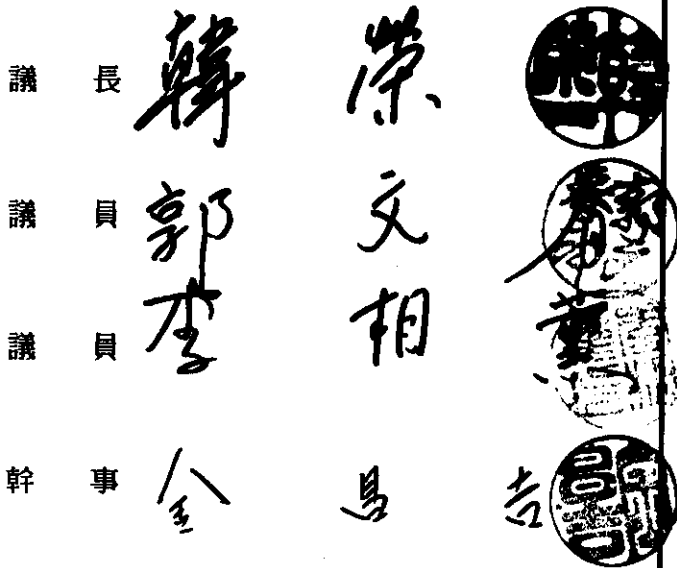 議長 韓榮
議員 郭文
議員 李相薰
幹事 金昌吉